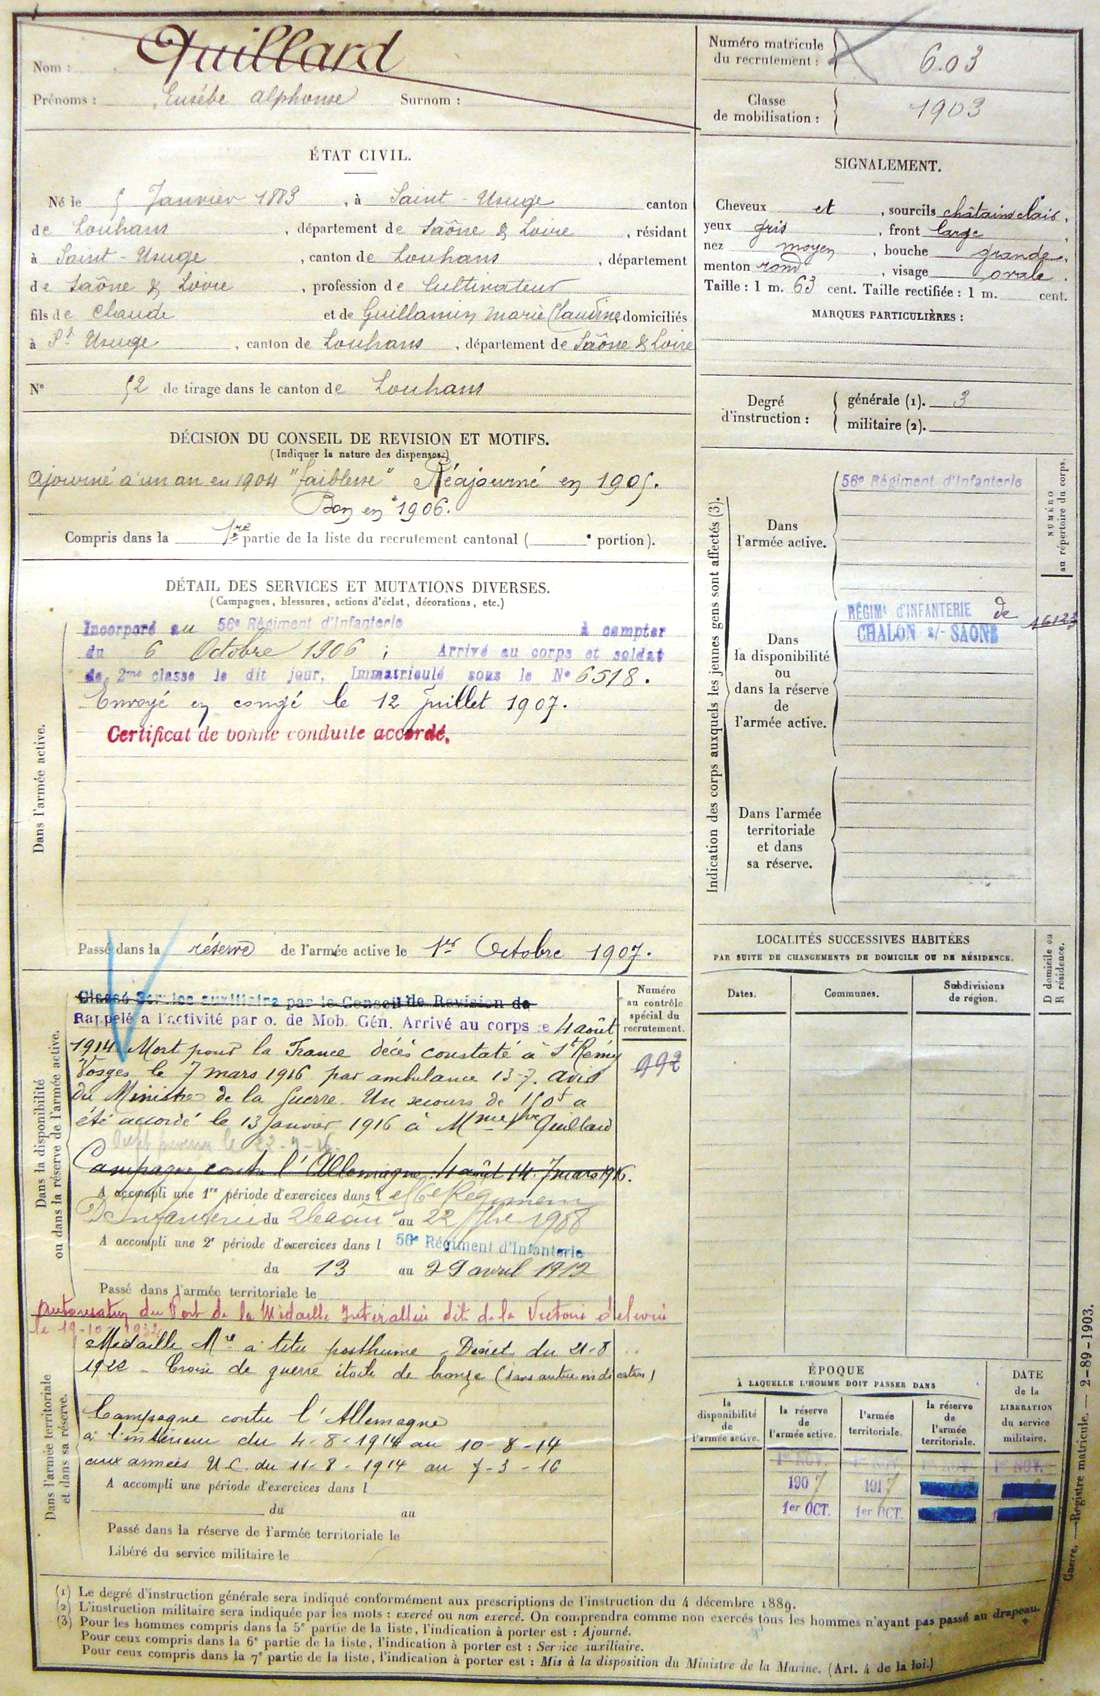 Nom : Quillard
Prénoms : Eusébe alphonse Surnom :
Numéro matricule du recrutement : 603
Classe de mobilisation : 1903
ÉTAT CIVIL.
Né le 5 Janvier 1883, à Saint-Usuge canton
de Louhans, département de Saône & Loire, résidant
à Saint-Usuge, canton de Louhans, département
de Saône & Loire, profession de Cultivateur
fils de Claude et de Guillamin Marie Claudine, domiciliés
à St Usuge, canton de Louhans, département de Saône & Loire
N° 52 de tirage dans le canton de Louhans
SIGNALEMENT.
Cheveux et, sourcils châtains clairs,
yeux gris, front large,
nez moyen, bouche grande,
menton rond, visage ovale.
Taille : 1 m. 63 cent. Taille rectifiée : 1 m. cent.
MARQUES PARTICULIÈRES :
Degré d'instruction :
générale (1). 3
militaire (2).
DÉCISION DU CONSEIL DE REVISION ET MOTIFS.
(Indiquer la nature des dispenses.)
Ajourné à un an en 1904 "faiblesse" Réajourné en 1905.
Bon en 1906.
Compris dans la 1re partie de la liste du recrutement cantonal ( portion).
DÉTAIL DES SERVICES ET MUTATIONS DIVERSES.
(Campagnes, blessures, actions d'éclat, décorations, etc.)
Dans l'armée active.
Incorporé au 56e Régiment d'Infanterie à compter
du 6 Octobre 1906 ; Arrivé au corps et soldat
de 2me classe le dit jour, Immatriculé sous le No 6518.
Envoyé en congé le 12 Juillet 1907.
Certificat de bonne conduite accordé.
Passé dans la réserve de l'armée active le 1er Octobre 1907.
Indication des corps auxquels les jeunes gens sont affectés (3).
Dans l'armée active.
56e Régiment d'Infanterie
NUMÉRO au répertoire du corps.
Dans la disponibilité ou dans la réserve de l'armée active.
RÉGIMt D'INFANTERIE de
CHALON s/- SAONE
Dans l'armée territoriale et dans sa réserve.
Dans la disponibilité ou dans la réserve de l'armée active.
Classé Service auxiliaire par le Conseil de Revision de
Rappelé à l'activité par o. de Mob. Gén. Arrivé au corps le 4 août
1914. Mort pour la France décès constaté à St Rémy
Vosges le 7 mars 1916 par ambulance 13-7. avis
du Ministre de la Guerre. Un secours de 150f a
été accordé le 13 janvier 1916 à Mme Vve Quillard
Campagne contre l'Allemagne. 4 août 14. 7 mars 1916.
A accompli une 1re période d'exercices dans l e 56e Régiment
D'Infanterie du au 22 1908
A accompli une 2e période d'exercices dans l 56e Régiment d'Infanterie
du 13 au 29 avril 1912
Passé dans l'armée territoriale le
Numéro au contrôle spécial du recrutement.
992
Autorisation du Port de la Médaille Interalliée dite de la Victoire délivrée
Dans l'armée territoriale et dans sa réserve.
Médaille Mre à titre posthume. Décret du 21-8
1922 - Croix de guerre étoile de bronze (sans autre indication)
Campagne contre l'Allemagne
à l'intérieur du 4-8-1914 au 10-8-14
aux armées U.C. du 11-8-1914 au 7-3-16
A accompli une période d'exercices dans l
du au
Passé dans la réserve de l'armée territoriale le
Libéré du service militaire le
LOCALITÉS SUCCESSIVES HABITÉES
PAR SUITE DE CHANGEMENTS DE DOMICILE OU DE RÉSIDENCE.
Dates. Communes. Subdivisions de région. D domicile ou R résidence.
ÉPOQUE
À LAQUELLE L'HOMME DOIT PASSER DANS
la disponibilité de l'armée active. la réserve de l'armée active. l'armée territoriale. la réserve de l'armée territoriale.
DATE de la LIBERATION du service militaire.
1er NOV. 1er NOV. 1er NOV. 1er NOV.
1907 1917
1er OCT. 1er OCT.
Guerre. — Registre matricule. — 2-89-1903.
(1) Le degré d'instruction générale sera indiqué conformément aux prescriptions de l'instruction du 4 décembre 1889.
(2) L'instruction militaire sera indiquée par les mots : exercé ou non exercé. On comprendra comme non exercés tous les hommes n'ayant pas passé au drapeau.
(3) Pour les hommes compris dans la 5e partie de la liste, l'indication à porter est : Ajourné.
Pour ceux compris dans la 6e partie de la liste, l'indication à porter est : Service auxiliaire.
Pour ceux compris dans la 7e partie de la liste, l'indication à porter est : Mis à la disposition du Ministre de la Marine. (Art. 4 de la loi.)